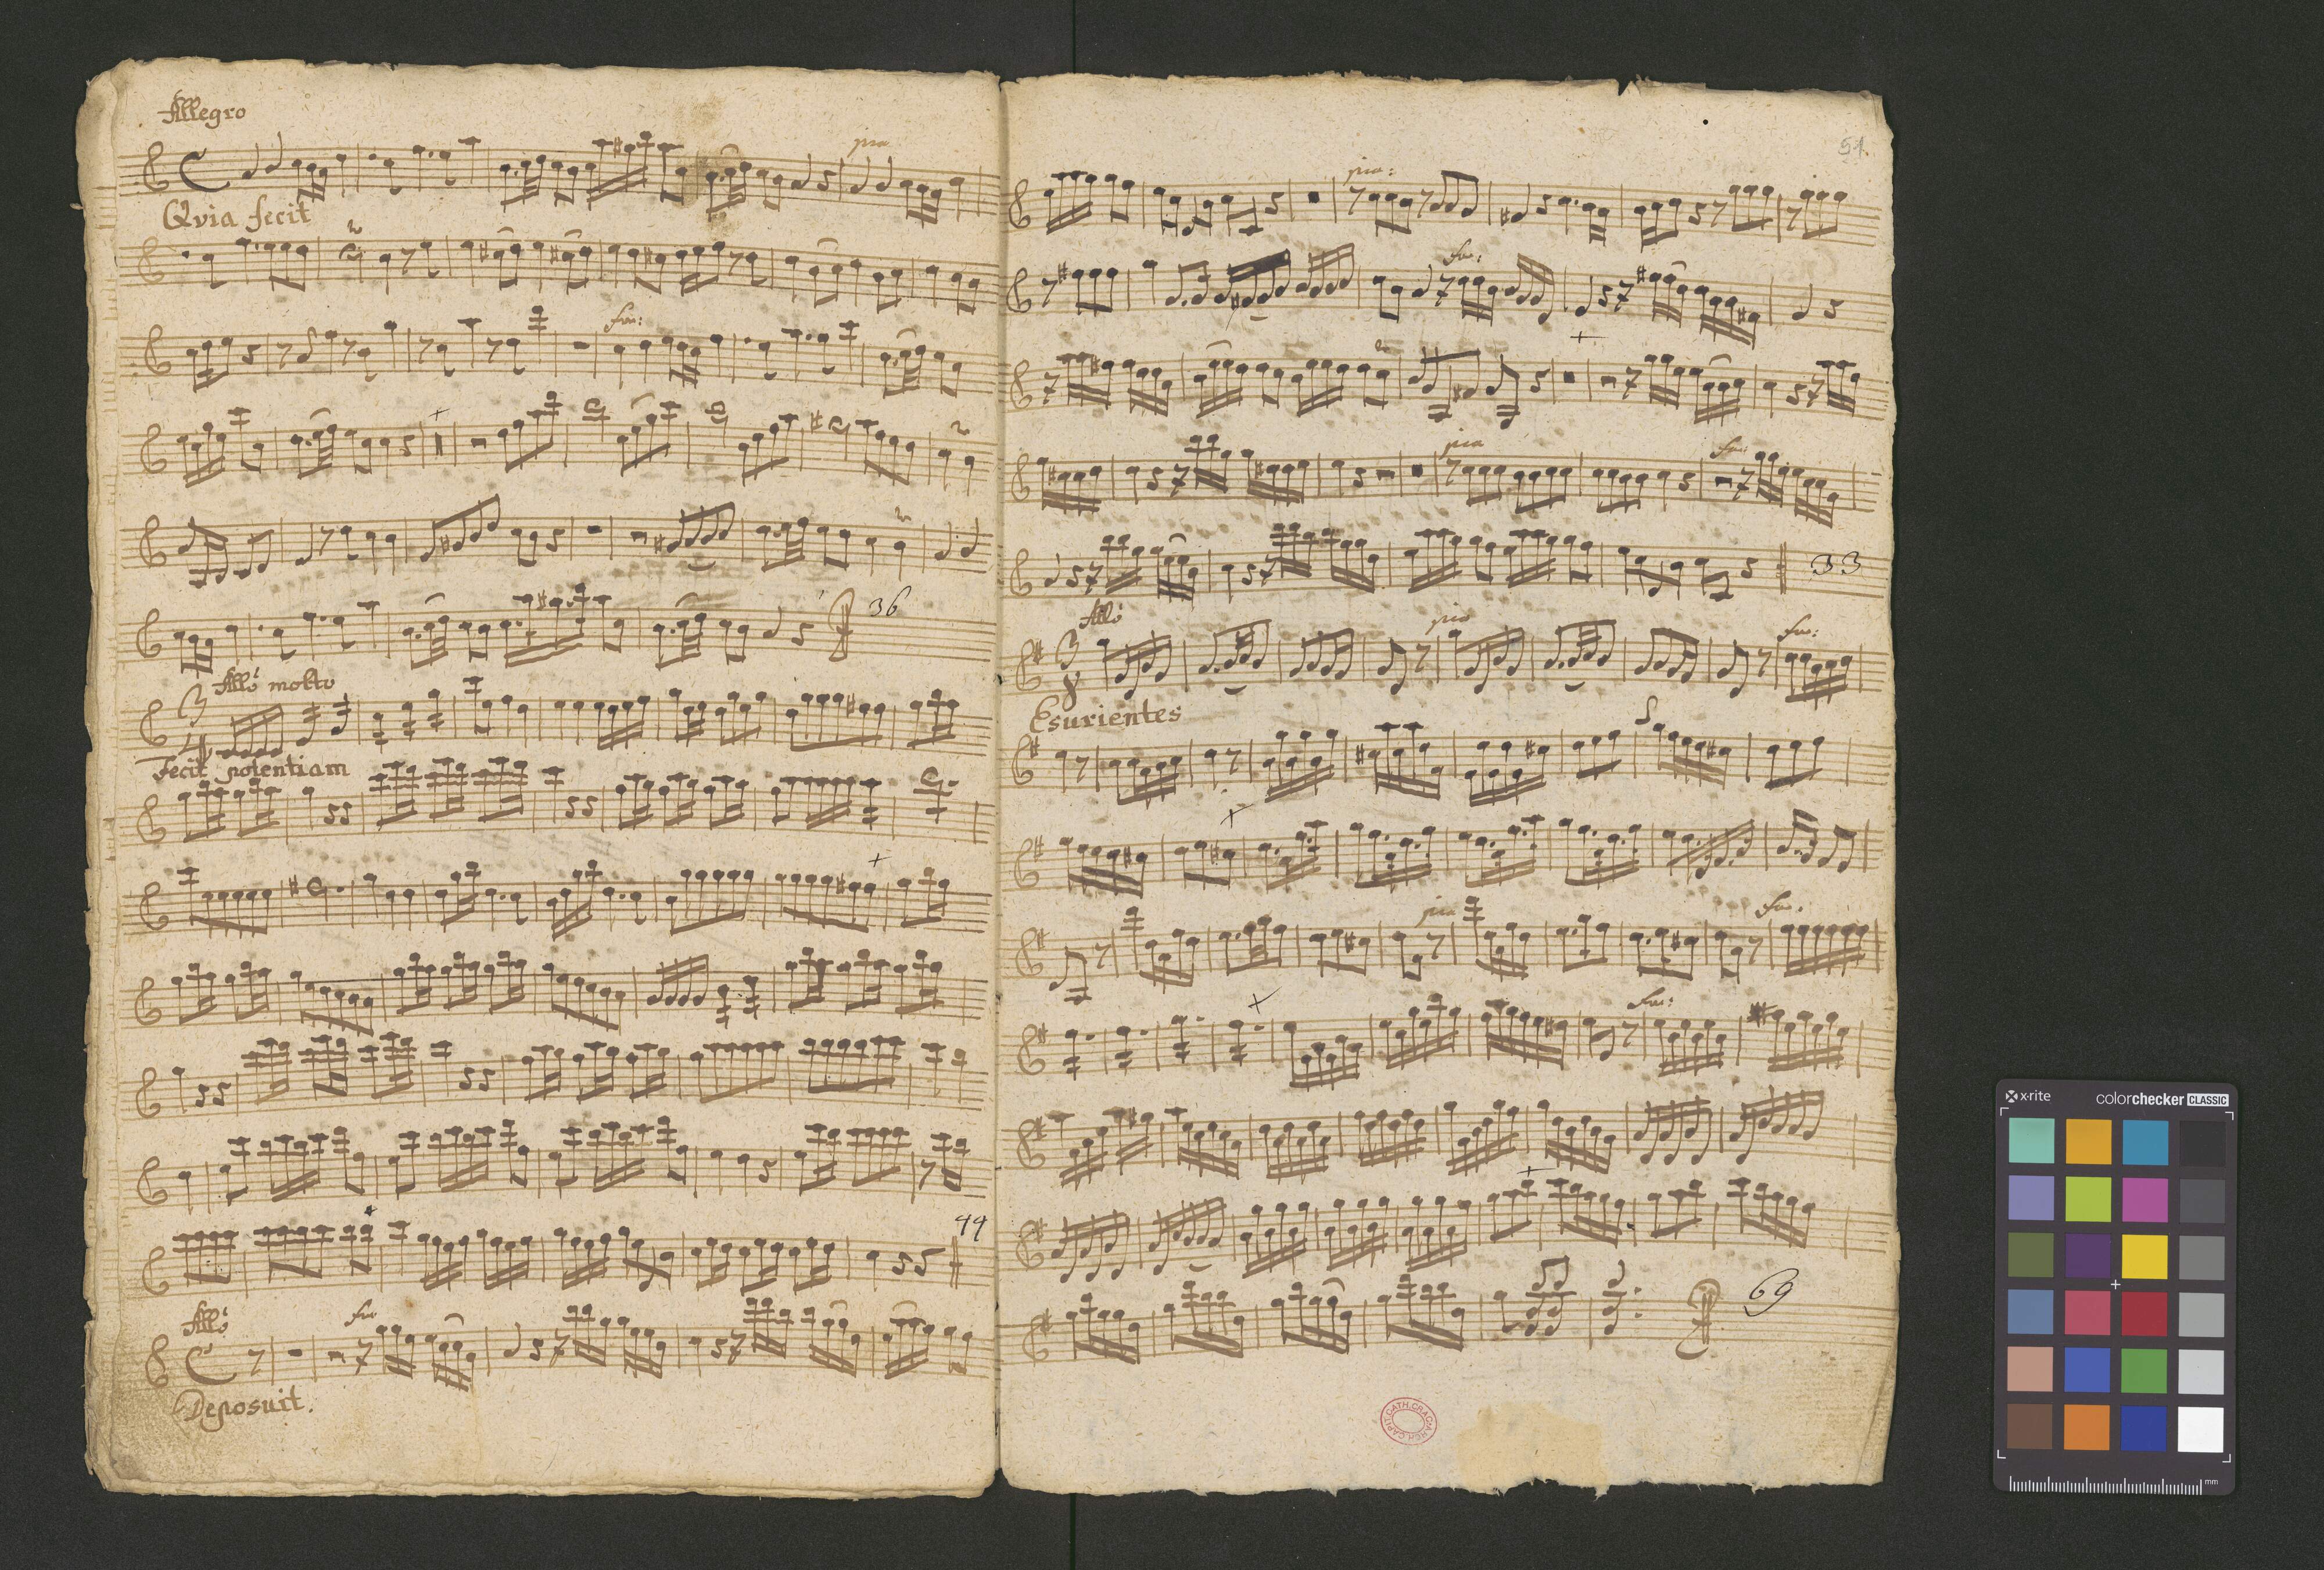 Allegro
pia
Qvia fecit
for:
36
All.º molto
3
4
Fecit potentiam
44
All.º
for
Deposuit.
51
pia:
for:
pia
for:
33
All.º
3
8
pia
for:
Esurientes
pia
for.
for:
69
ARCH. CAPIT. CATH. CRAC.
x-rite
colorchecker CLASSIC
mm